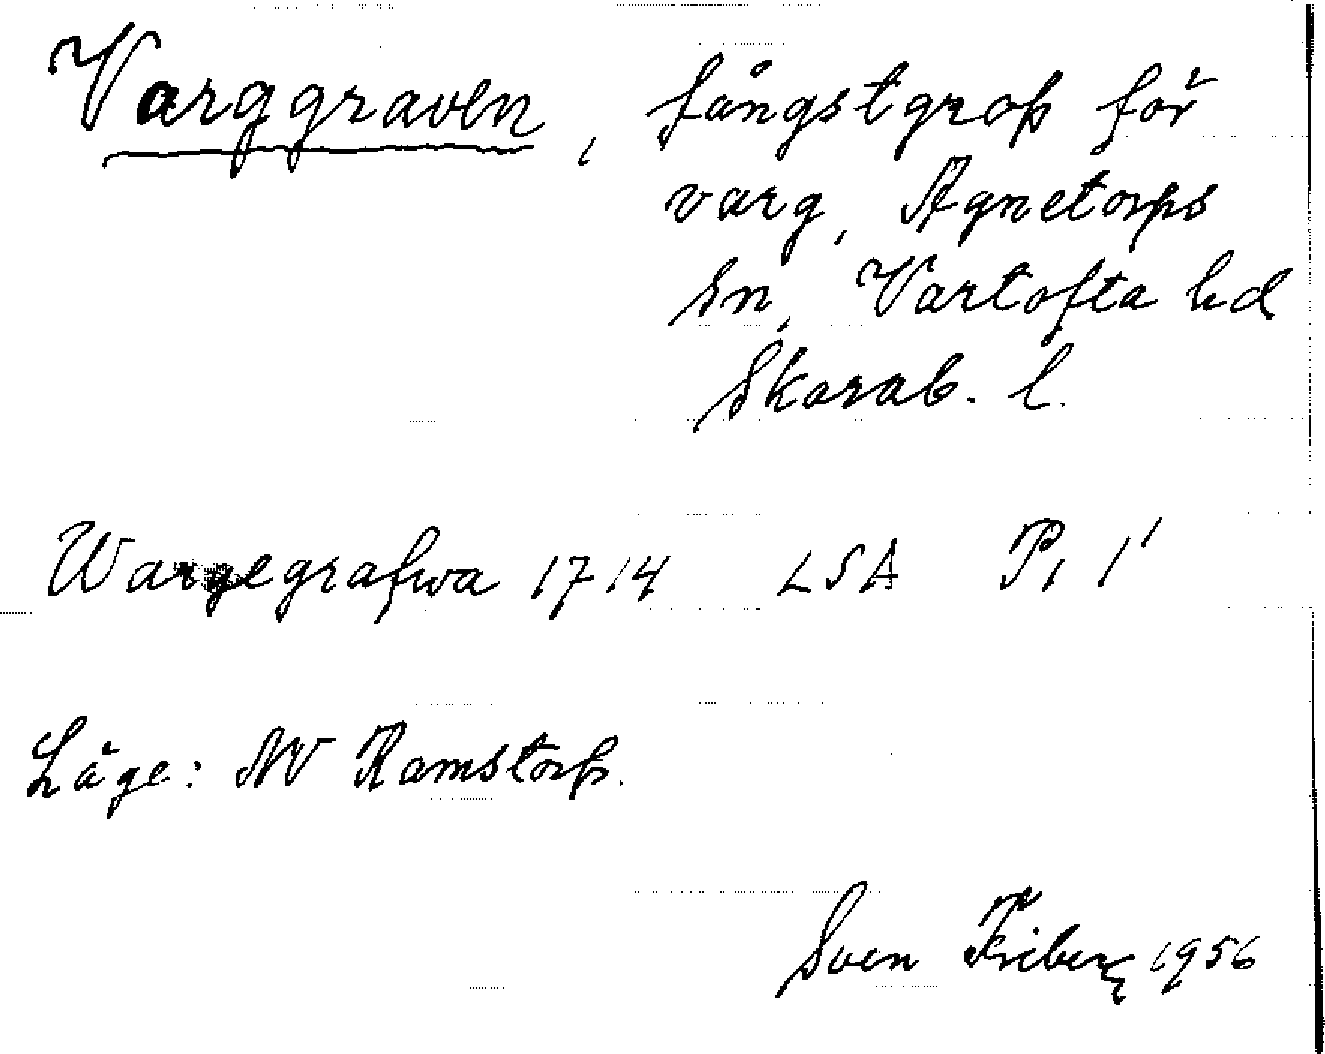 Varggraven, fångstgrop för
varg, Agnetorps
sn, Vartofta hd
Skarab. l.
Wargegrafwa 1714 LSA P, 1'
Läge: NV Ramstorp.
Sven Friberg 1956